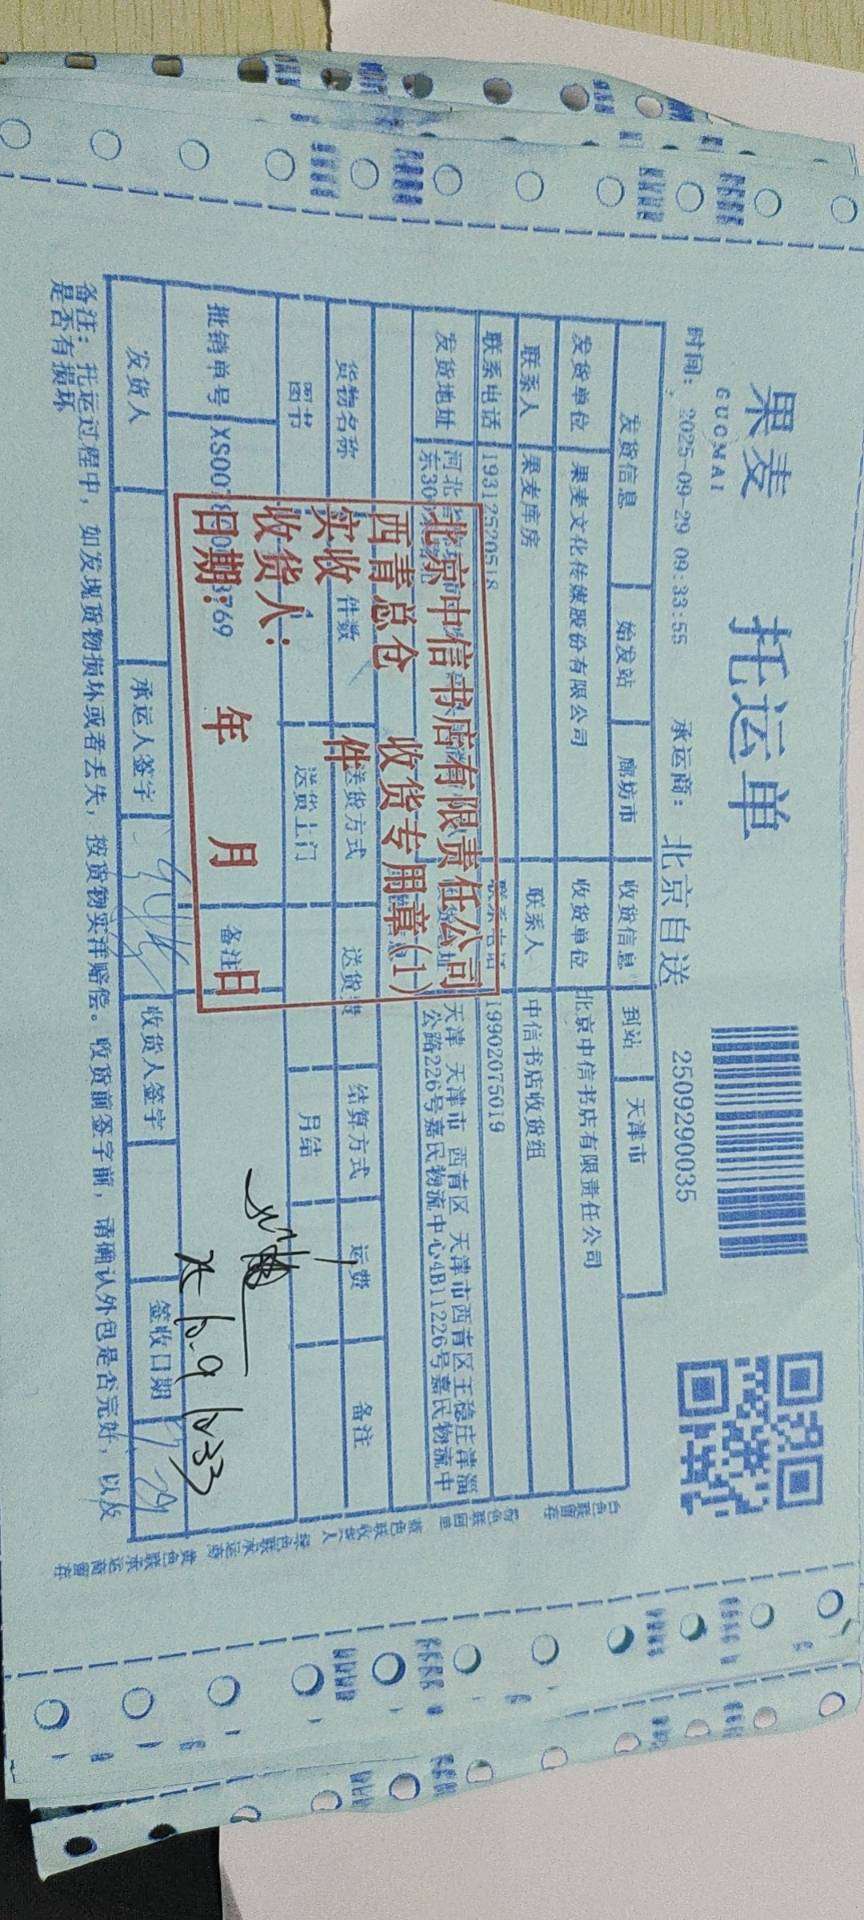 果麦
GUOMAI
托运单
2509290035
时间: 2025-09-29 09:33:55 承运商: 北京自送
发货信息 始发站 廊坊市 收货信息 到站 天津市
发货单位 果麦文化传媒股份有限公司 收货单位 北京中信书店有限责任公司
联系人 果麦库房 联系人 中信书店收货组
联系电话 19312520518 联系电话 19902075019
发货地址 河北 天津 天津市 西青区 天津市西青区王稳庄津淄
公路226号嘉民物流中心4B11226号嘉民物流中
货物名称 件数 送货方式 送货费 结算方式 运费 备注
图书 1 送货上门 月结
批销单号 XS007 3769 备注
发货人 承运人签字 收货人签字 签收日期
备注: 托运过程中, 如发现货物损坏或者丢失, 按货物实洋赔偿。收货前签字前, 请确认外包是否完好, 以及
是否有损坏
北京中信书店有限责任公司
西青总仓 收货专用章(1)
实收 件
收货人:
日期: 年 月 日
10.9 10:33
白色联留存
粉色联回单
蓝色联收货人
绿色联承运商
黄色联承运商留存